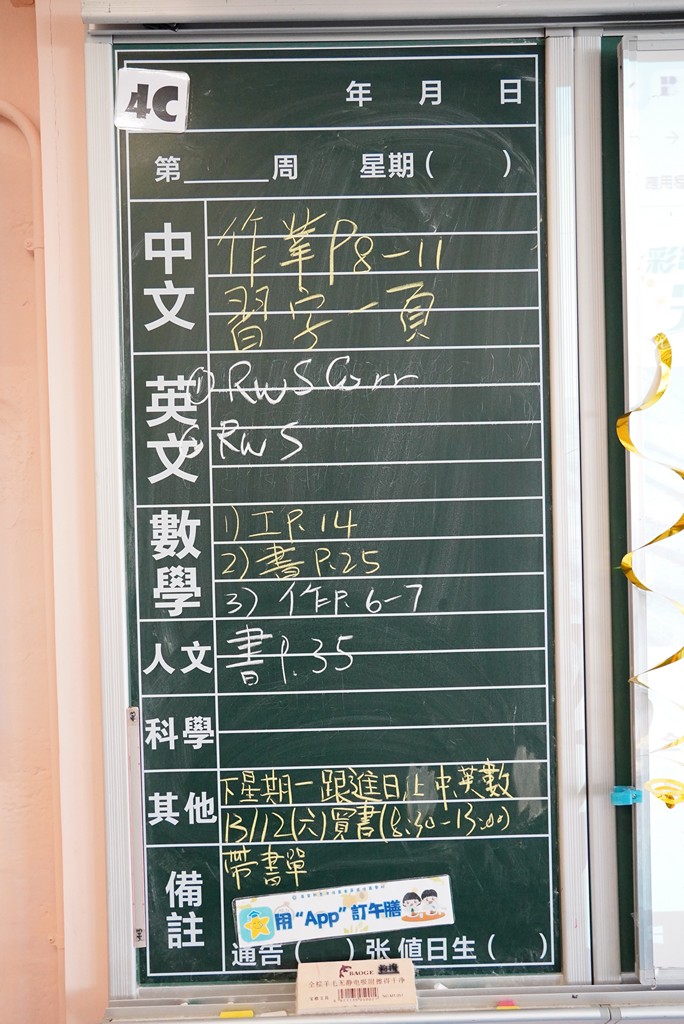 4C
年 月 日
第______周 星期( )
中文
作業P8-11
習字一頁
英文
① RWS Corr
RWS
數學
1) 工P.14
2) 書P.25
3) 作P.6-7
人文
書P.35
科學
其他
下星期一跟進日上中英數
13/12(六)買書(8:30-13:00)
備註
帶書單
用“App”訂午膳
通告( )张 值日生( )
BAOGE